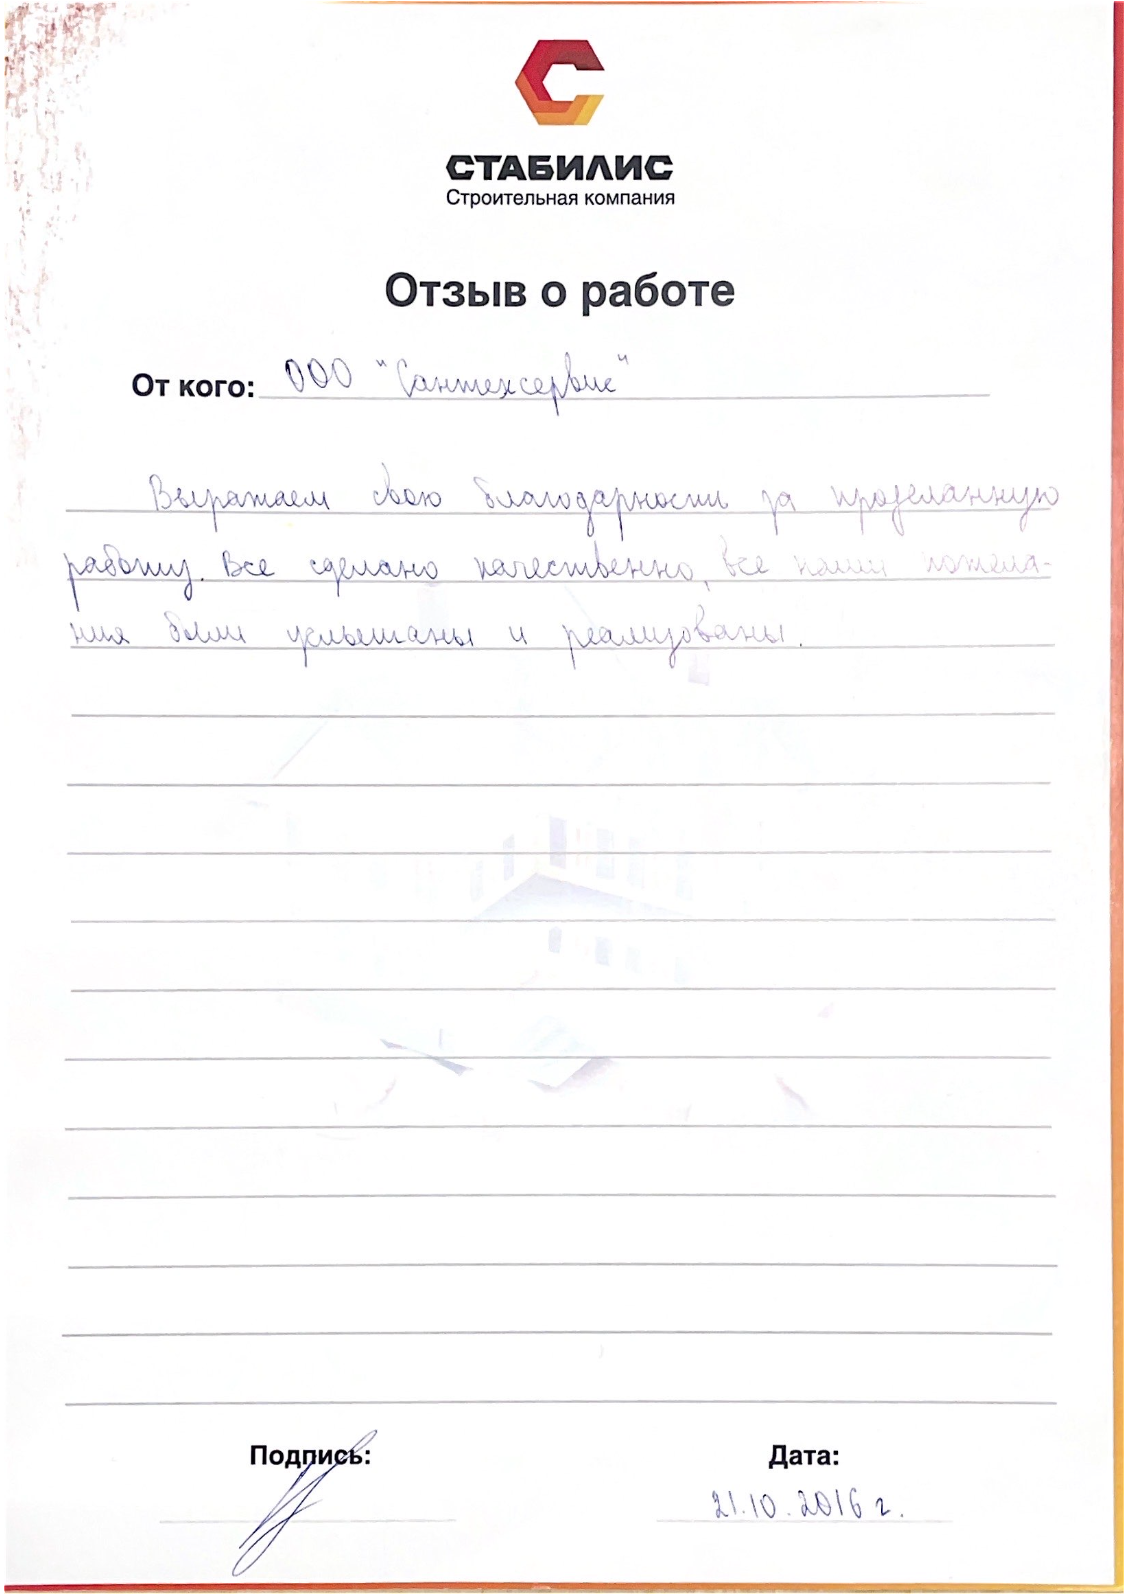 СТАБИЛИС
Строительная компания
Отзыв о работе
От кого: ООО "Сантехсервис"
Выражаем свою благодарность за проделанную
работу. Все сделано качественно, все наши пожела-
ния были услышаны и реализованы.
Подпись:
Дата:
21.10.2016 г.